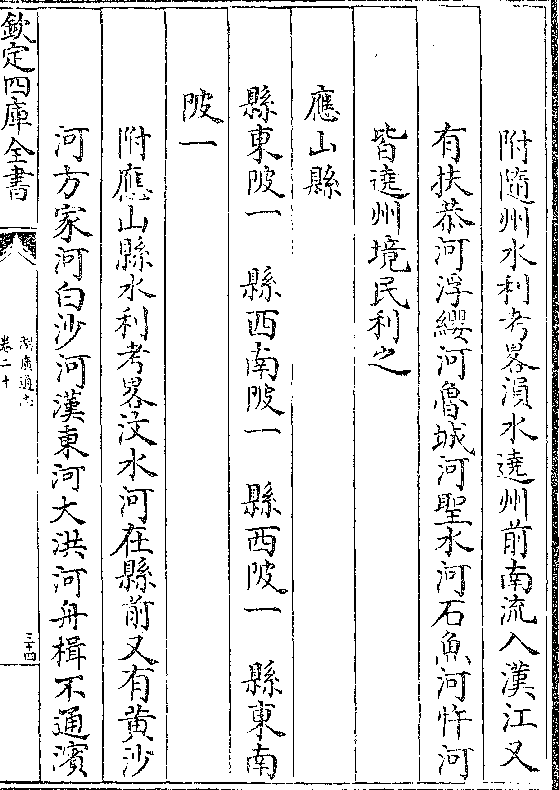 附隨州水利考畧溳水遶州前南流入漢江又
有扶恭河浮纓河魯城河聖水河石魚河忤河
皆遶州境民利之
應山縣
縣東陂一　縣西南陂一　縣西陂一　縣東南
陂一
附應山縣水利考畧汶水河在縣前又有黄沙
河方家河白沙河漢東河大洪河舟楫不通濱
欽定四庫全書
湖廣通志
卷二十
三十四